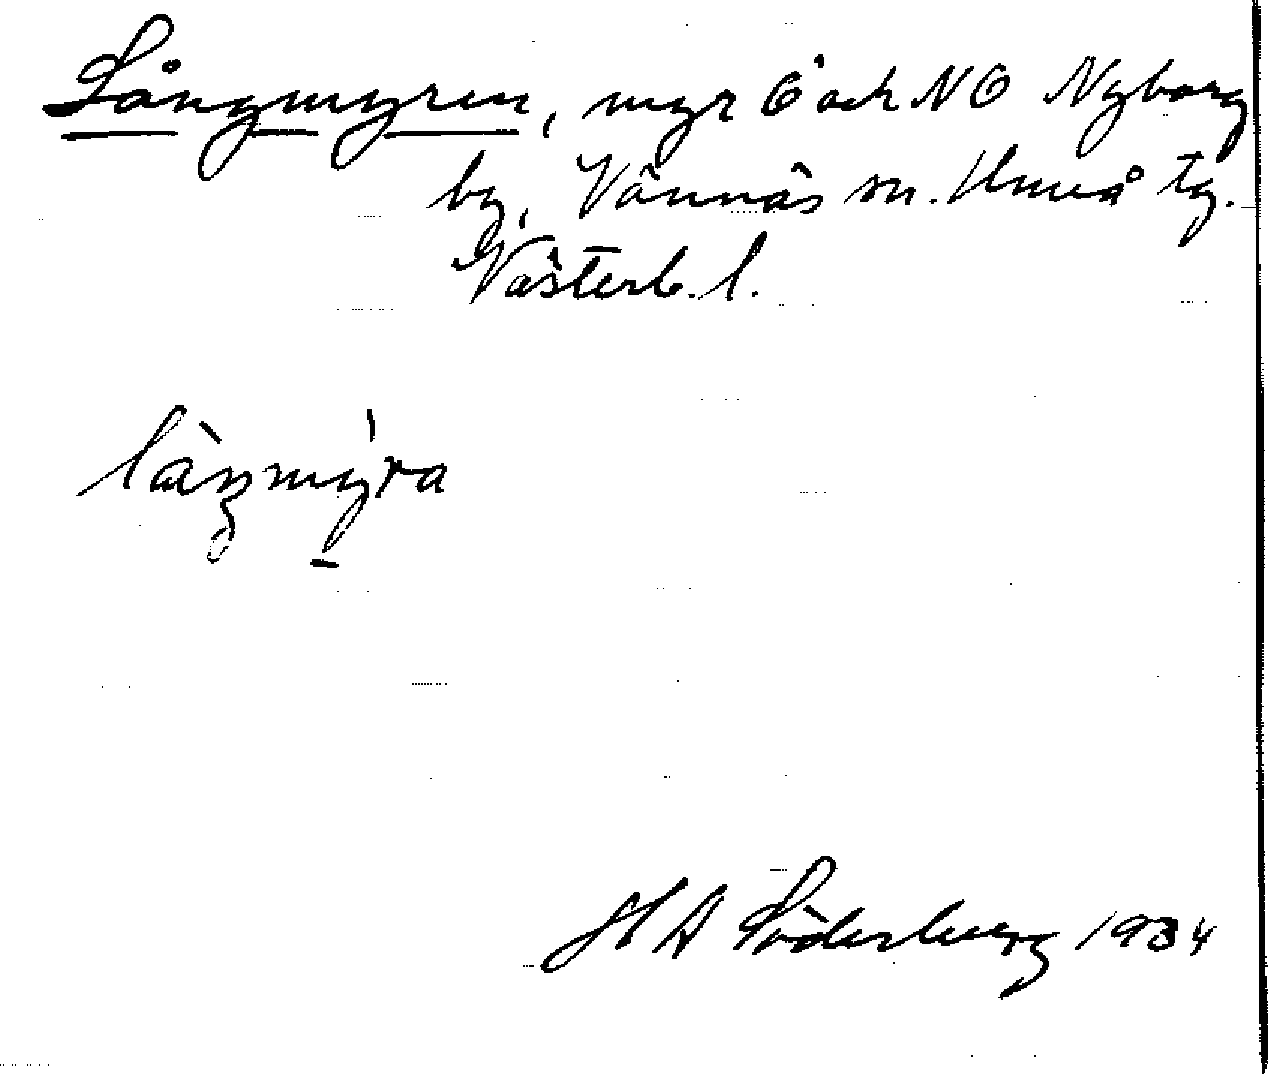 Långmyren, myr Ö och NÖ Nyborg
by, Vännäs sn. Umeå tg.
Västerb. l.
H A Söderberg 1934